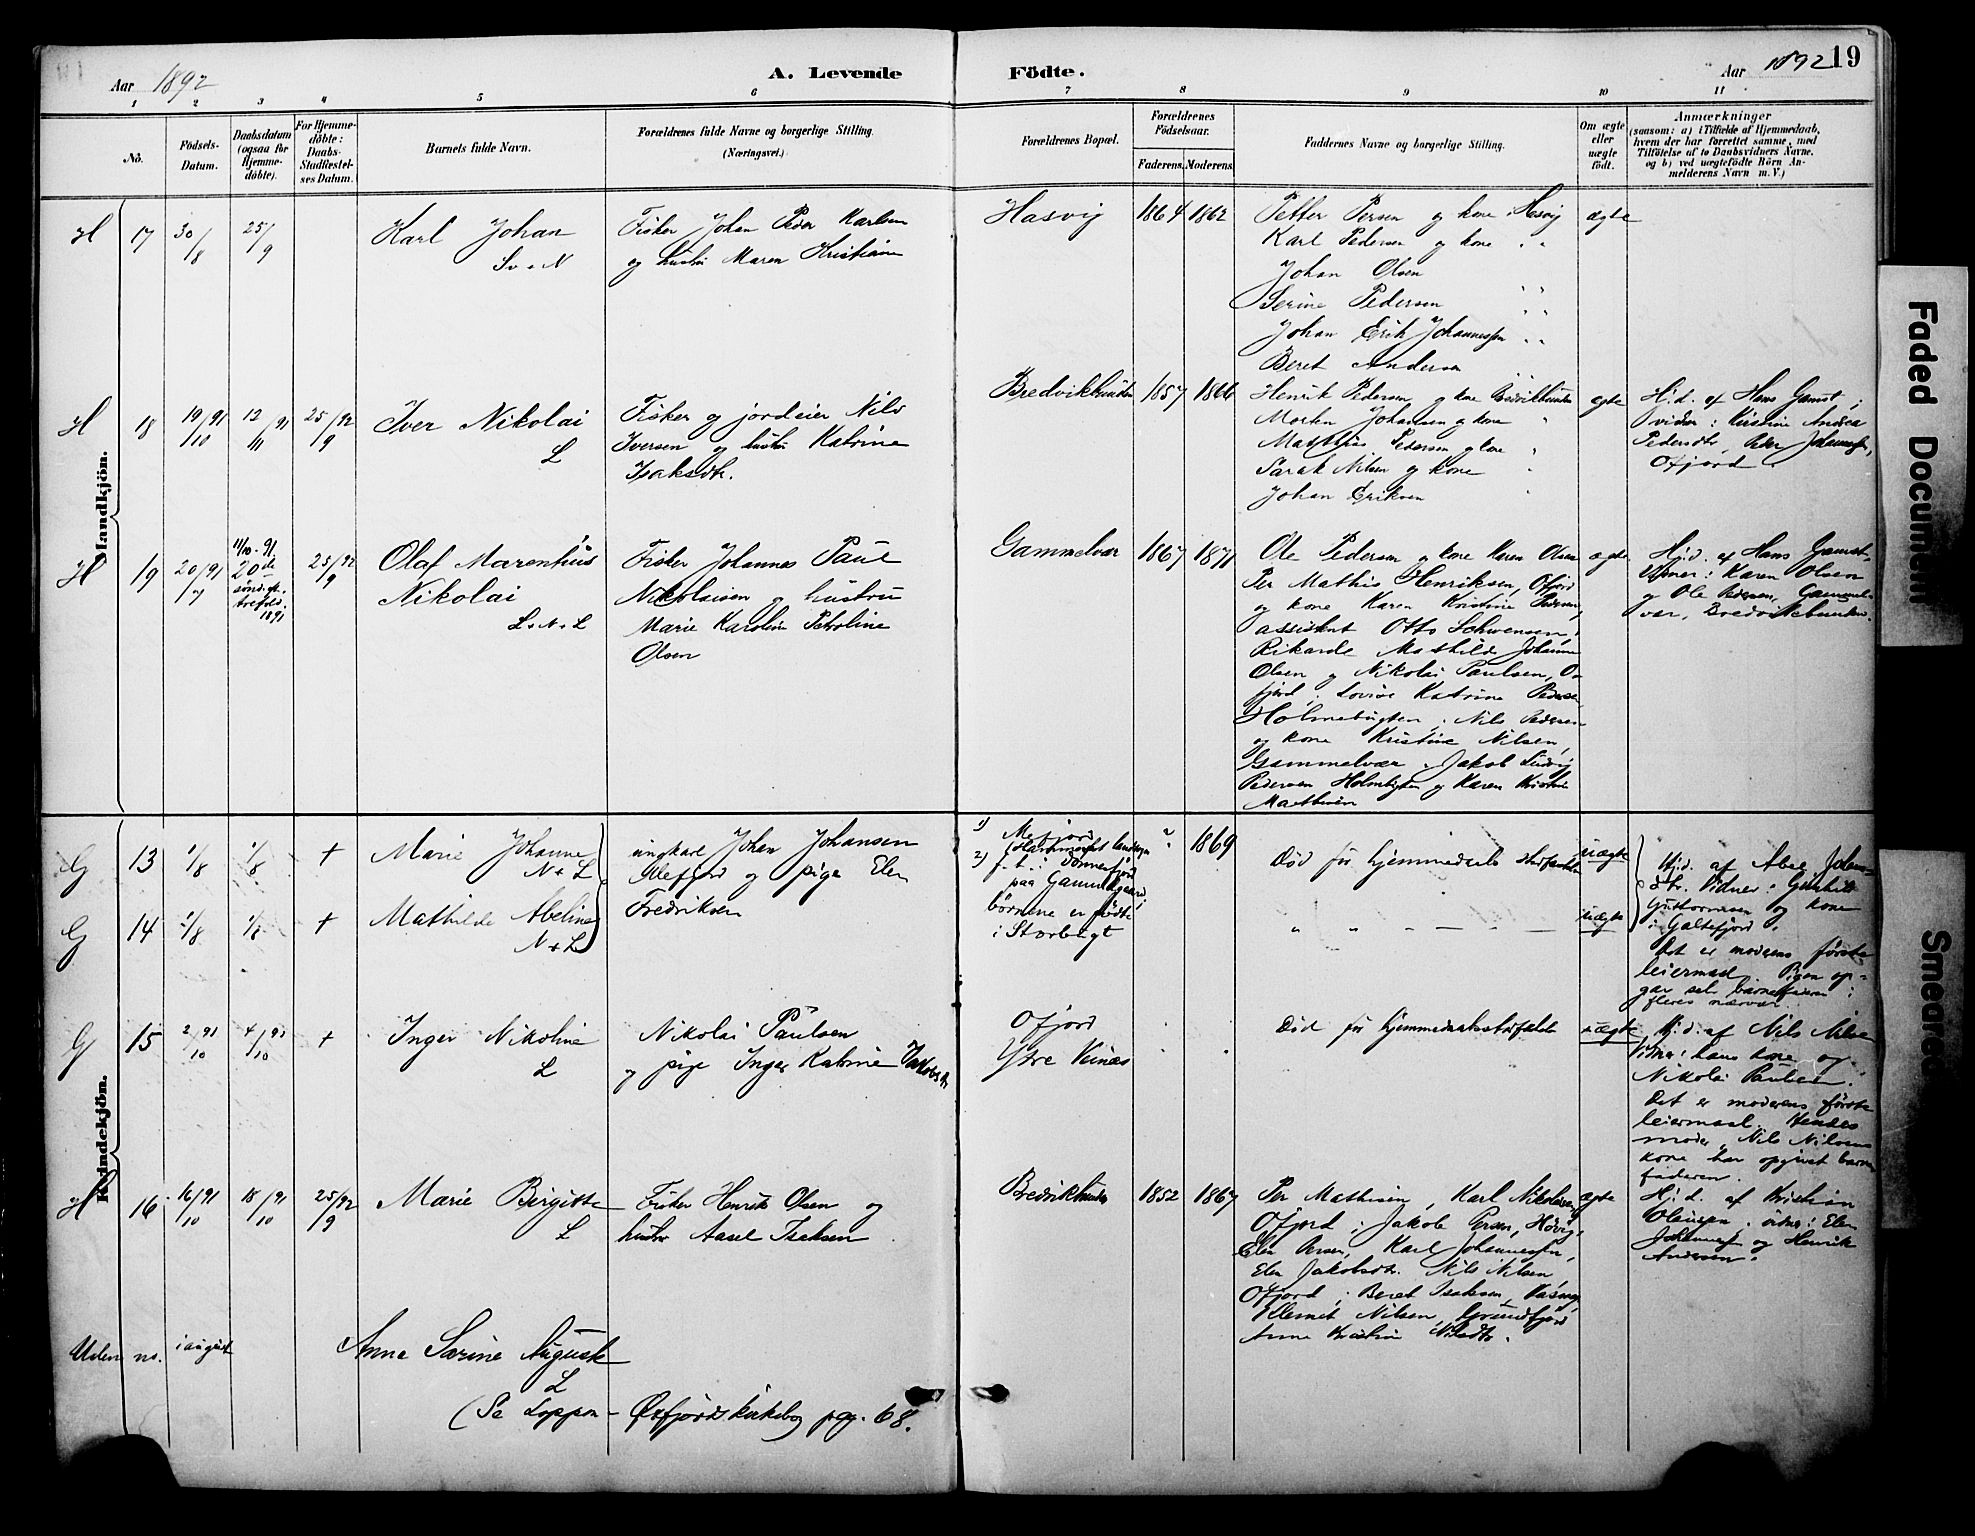 Aar 1892
A. Levende Födte.
Aar 1892 19
1 2 3 4 5 6 7 8 9 10 11
No.
Födsels-Datum.
Daabsdatum (ogsaa for Hjemme-döbte).
For Hjemme-döbte: Daabs-Stadfæstel-ses Datum.
Barnets fulde Navn.
Forældrenes fulde Navne og borgerlige Stilling. (Næringsvei.)
Forældrenes Bopæl.
Forældrenes Födselsaar.
Faderens. Moderens.
Faddernes Navne og borgerlige Stilling.
Om ægte eller uægte födt.
Anmærkninger
(saasom: a) i Tilfælde af Hjemmedaab,
hvem der har forrettet samme, med
Tilföielse af to Daabsvidners Navne,
og b) ved uægtefödte Börn An-
melderens Navn m. V.)
Mandkjön.
H 17 30/8 25/9
Karl Johan
Fisker Johan Peder Karlsen
og hustru Maren Kristiane
Hasvig 1864 1862
Petter Persen og kone, Hasvig
Karl Pedersen og kone
Johan Olsen
Serine Pedersen
Johan Erik Johannessen
Beret Andersen
ægte
H 18 19/10 91 12/11 91 25/9 92
Iver Nikolai
L
Fisker og jordeier Nils
Iversen og hustru Katrine
Isaksdtr.
Bredvikbunden 1857 1866
Henrik Pedersen og kone Bredvikbunden
Morten Johansen og kone
Matthias Pedersen og kone
Sarak Nilsen og kone
Johan Eriksen
ægte
Hj.d. af Hans Gamst;
vidner: Kristine Andrea
Pedersdtr, Peder Johannesen,
Ofjord.
H 19 20/7 91
11/10-91.
20de
sönd. e.
trefold.
1891
25/9 92
Olaf Marenhus
Nikolai
L+N+L
Fisker Johannes Paul
Nikolaisen og hustru
Marie Karoline Petroline
Olsen
Gammelvær 1867 1871
Ole Pedersen og kone Karen Olsen
Per Mathis Henriksen, Ofjord
og kone Karen Kristine Pedersen,
assistent Otto Schwensen,
Rikarde Mathilde Johanne
Olsen og Nikolai Paulsen, O-
fjord, Lovise Katrine Pedersen
Holmebugten, Nils Pedersen
og kone Kristine Nilsen,
Gammelvær, Jakob Ludvig
Pedersen Holmbugten og Karen Kristine
Mathisen
ægte
Hj.d. af Hans Gamst
Vidner: Karen Olsen
og Ole Pedersen, Gammel-
vær, Bredvikbunden.
Kvindekjön.
G 13 1/8 1/8 +
Marie Johanne
N+L
ungkarl Johan Johansen
Mefjord og pige Elen
Fredriksen
1) Mefjord
2) f. t. i Dönnesfjord
paa Gammelgaard,
börnene er födte
i Storbugt
1869
Död för hjemmedaabs stadfæstelse
uægte
Hj.d. af Abel Johans-
dtr. Vidner:
Guttormsen og kone
i Galtefjord.
Det er moderens förste
leiermaal. Pigen op-
gav selv barnefaderen i
fleres nærvær.
G 14 1/8 1/8 +
Mathilde Abeline
N+L
uægte
G 15 2/10 91 4/10 91 +
Inger Nikoline
L
Nikolai Paulsen
og pige Inger Katrine Jakobsdtr
Ofjord
Ytre Veinæs
Död för hjemmedaabsstadfæstelse
uægte
Hj.d. af Nils Nilsen
Vidner: hans kone og
Nikolai Paulsen.
Det er moderens förste
leiermaal. Hendes
moder, Nils Nilsens
kone har opgivet barne
faderen.
H 16 16/10 91 18/10 91 25/9 92
Marie Birgitte
L
Fisker Henrik Olsen og
hustru Aasel Isaksen
Bredvikbunden 1852 1867
Per Mathisen, Karl Nikolaisen,
Ofjord; Jakob Persen, Hasvig,
Elen Persen, Karl Johannessen,
Elen Jakobsdtr. Nils Nilsen
Ofjord; Beret Isaksen,
Klemet Nilsen, Grundfjord
Anne Kristine Nilsdtr.
ægte
Hj.d. af Kristian
Olausen. vidner: Elen
Johannesen og Henrik
Andersen.
Uden no. i august
Anna Sarine Auguste
L
(Se Loppen - Öxfjords kirkebog pag. 68.
Faded Document
Smeared